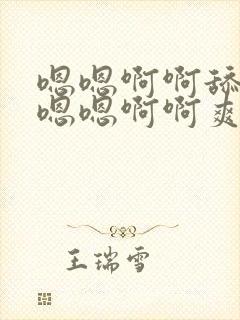 嗯嗯啊啊舔
嗯嗯啊啊爽
王瑞雪